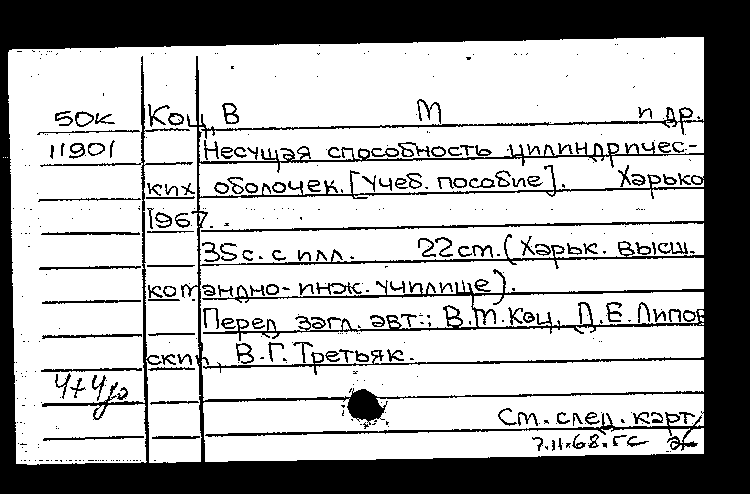 50к Коц, В М и др.
11901 Несущая способность цилиндричес-
ких оболочек. [Учеб. пособие]. Харько
1967.
35с. с илл. 22см. (Харьк. высш.
командно-инж. училище).
Перед загл. авт.: В.М.Коц, Л.Е.Липов
ский, В.Г.Третьяк.
См. след. карт
7.II.68.гс